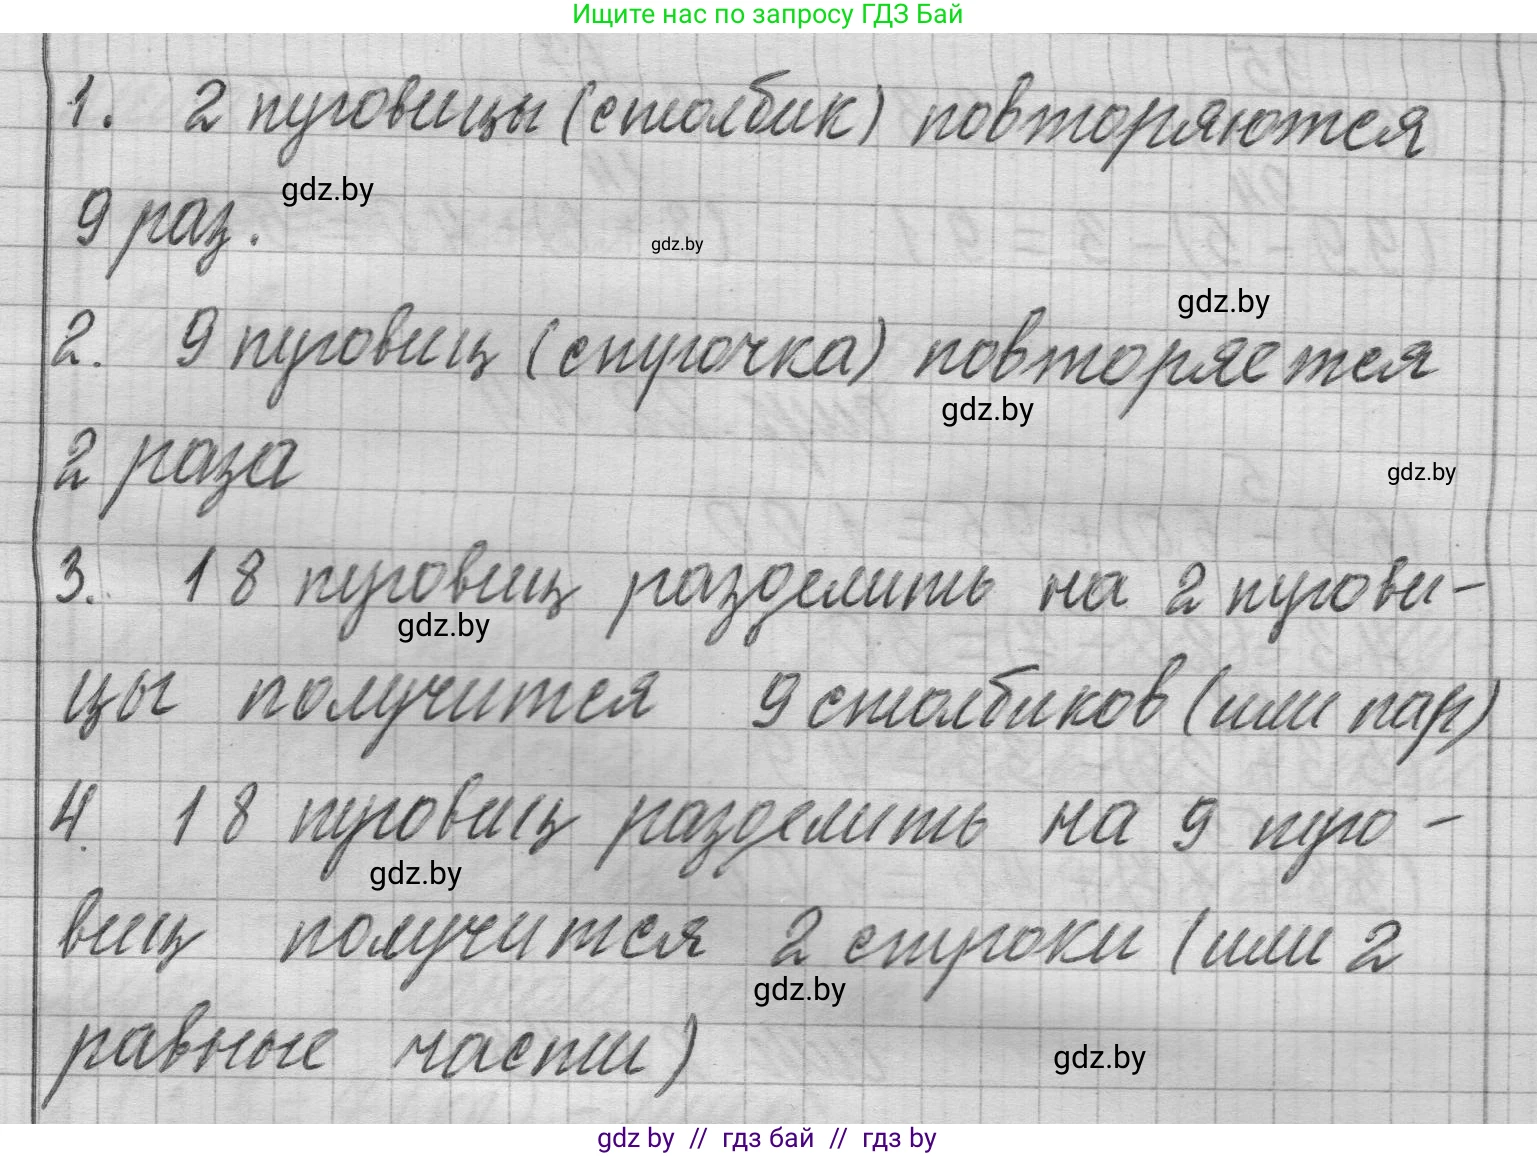 Ищите нас по запросу ГДЗ Бай
1. 2 пуговицы (столбик) повторяются
9 раз.
gdz.by
gdz.by
gdz.by
2. 9 пуговиц (строчка) повторяется
gdz.by
2 раза
gdz.by
3. 18 пуговиц разделить на 2 пугови-
gdz.by
цы получится 9 столбиков (или пар)
4. 18 пуговиц разделить на 9 пуго-
gdz.by
виц получится 2 строки (или 2
gdz.by
равные части)
gdz.by
gdz by // гдз бай // гдз by